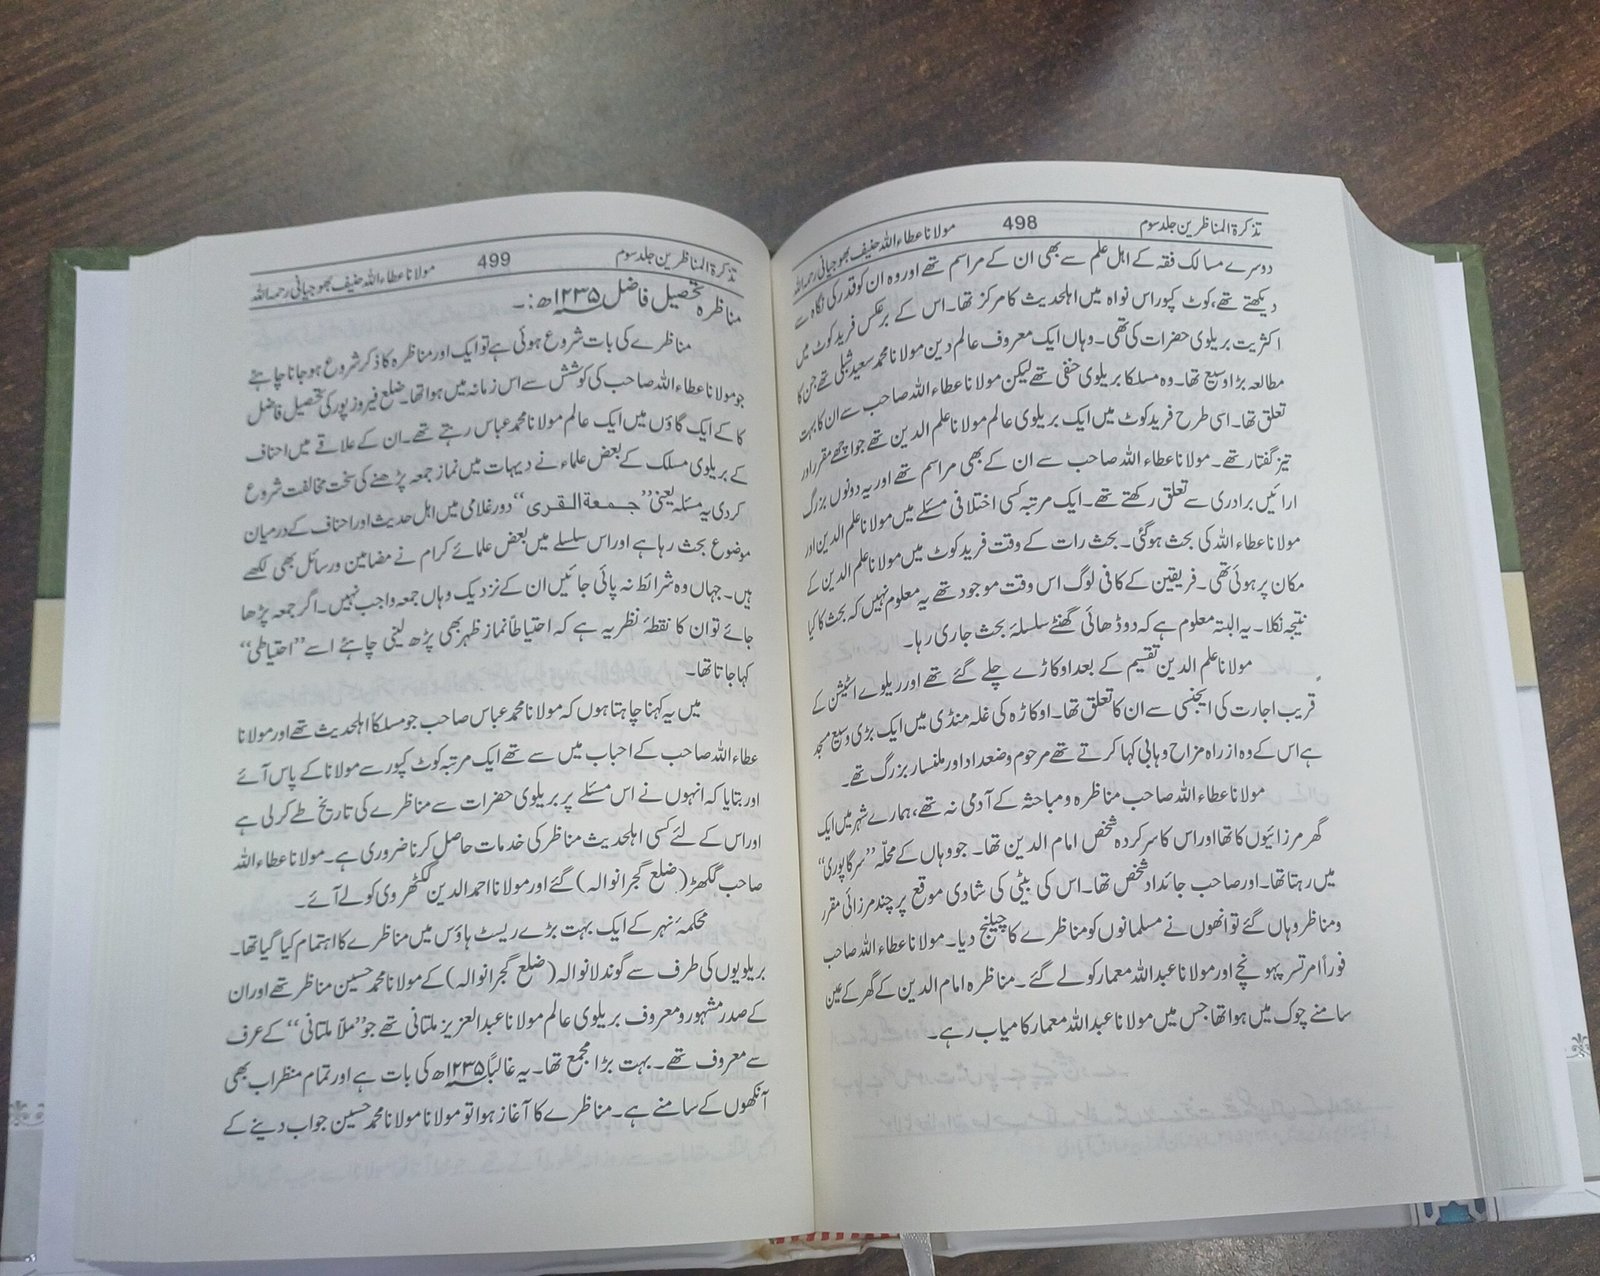 تذکرۃ المناظرین جلد سوم 498 مولانا عطاء اللہ حنیف بھوجیانی رحمہ اللہ
دوسرے مسالک فقہ کے اہل علم سے بھی ان کے مراسم تھے اور وہ ان کو قدر کی نگاہ سے
دیکھتے تھے، کوٹ کپور اس نواہ میں اہلحدیث کا مرکز تھا۔ اس کے برعکس فرید کوٹ میں
اکثریت بریلوی حضرات کی تھی۔ وہاں ایک معروف عالم دین مولانا محمد سعید شبلی تھے جن کا
مطالعہ بڑا وسیع تھا۔ وہ مسلکا بریلوی حنفی تھے لیکن مولانا عطاء اللہ صاحب سے ان کا بہت
تعلق تھا۔ اسی طرح فرید کوٹ میں ایک بریلوی عالم مولانا علم الدین تھے جو اچھے مقرر اور
تیز گفتار تھے۔ مولانا عطاء اللہ صاحب سے ان کے بھی مراسم تھے اور یہ دونوں بزرگ
ارائیں برادری سے تعلق رکھتے تھے۔ ایک مرتبہ کسی اختلافی مسئلے میں مولانا علم الدین اور
مولانا عطاء اللہ کی بحث ہوگئی۔ بحث رات کے وقت فرید کوٹ میں مولانا علم الدین کے
مکان پر ہوئی تھی۔ فریقین کے کافی لوگ اس وقت موجود تھے یہ معلوم نہیں کہ بحث کا کیا
نتیجہ نکلا۔ یہ البتہ معلوم ہے کہ دو ڈھائی گھنٹے سلسلۂ بحث جاری رہا۔
مولانا علم الدین تقسیم کے بعد اوکاڑے چلے گئے تھے اور ریلوے اسٹیشن کے
قریب اجارت کی ایجنسی سے ان کا تعلق تھا۔ اوکاڑہ کی غلہ منڈی میں ایک بڑی وسیع مسجد
ہے اس کے وہ از راہ مزاح وہابی کہا کرتے تھے مرحوم وضعداد اور ملنسار بزرگ تھے۔
مولانا عطاء اللہ صاحب مناظرہ و مباحثہ کے آدمی نہ تھے، ہمارے شہر میں ایک
گھر مرزائیوں کا تھا اور اس کا سرکردہ شخص امام الدین تھا۔ جو وہاں کے محلّہ ’’سرگاپوری‘‘
میں رہتا تھا۔ اور صاحب جائداد شخص تھا۔ اس کی بیٹی کی شادی موقع پر چند مرزائی مقرر
ومناظر وہاں گئے تو انھوں نے مسلمانوں کو مناظرے کا چیلنج دیا۔ مولانا عطاء اللہ صاحب
فوراً امرتسر پہونچے اور مولانا عبداللہ معمار کو لے گئے۔ مناظرہ امام الدین کے گھر کے عین
سامنے چوک میں ہوا تھا جس میں مولانا عبداللہ معمار کامیاب رہے۔
تذکرۃ المناظرین جلد سوم 499 مولانا عطاء اللہ حنیف بھوجیانی رحمہ اللہ
مناظرہ تحصیل فاضل ۱۲۳۵ھ:۔
مناظرے کی بات شروع ہوئی ہے تو ایک اور مناظرہ کا ذکر شروع ہو جانا چاہئے
جو مولانا عطاء اللہ صاحب کی کوشش سے اس زمانہ میں ہوا تھا۔ ضلع فیروز پور کی تحصیل فاضل
کا کے ایک گاؤں میں ایک عالم مولانا محمد عباس رہتے تھے۔ ان کے علاقے میں احناف
کے بریلوی مسلک کے بعض علماء نے دیہات میں نماز جمعہ پڑھنے کی سخت مخالفت شروع
کردی یہ مسئلہ یعنی ’’جمعة القرى‘‘ دور غلامی میں اہل حدیث اور احناف کے درمیان
موضوع بحث رہا ہے اور اس سلسلے میں بعض علمائے کرام نے مضامین ورسائل بھی لکھے
ہیں۔ جہاں وہ شرائط نہ پائی جائیں ان کے نزدیک وہاں جمعہ واجب نہیں۔ اگر جمعہ پڑھا
جائے تو ان کا نقطۂ نظر یہ ہے کہ احتیاطاً نماز ظہر بھی پڑھ لینی چاہئے اسے ’’احتیاطی‘‘
کہا جاتا تھا۔
میں یہ کہنا چاہتا ہوں کہ مولانا محمد عباس صاحب جو مسلکا اہلحدیث تھے اور مولانا
عطاء اللہ صاحب کے احباب میں سے تھے ایک مرتبہ کوٹ کپور سے مولانا کے پاس آئے
اور بتایا کہ انہوں نے اس مسئلے پر بریلوی حضرات سے مناظرے کی تاریخ طے کرلی ہے
اور اس کے لئے کسی اہلحدیث مناظر کی خدمات حاصل کرنا ضروری ہے۔ مولانا عطاء اللہ
صاحب گکھڑ (ضلع گجرانوالہ) گئے اور مولانا احمد الدین گکھڑوی کو لے آئے۔
محکمہٴ نہر کے ایک بہت بڑے ریسٹ ہاؤس میں مناظرے کا اہتمام کیا گیا تھا۔
بریلویوں کی طرف سے گوندلانوالہ (ضلع گجرانوالہ) کے مولانا محمد حسین مناظر تھے اور ان
کے صدر مشہور ومعروف بریلوی عالم مولانا عبدالعزیز ملتانی تھے جو ’’ملّا ملتانی‘‘ کے عرف
سے معروف تھے۔ بہت بڑا مجمع تھا۔ یہ غالباً ۱۲۳۵ھ کی بات ہے اور تمام منظر اب بھی
آنکھوں کے سامنے ہے۔ مناظرے کا آغاز ہوا تو مولانا مولانا محمد حسین جواب دینے کے